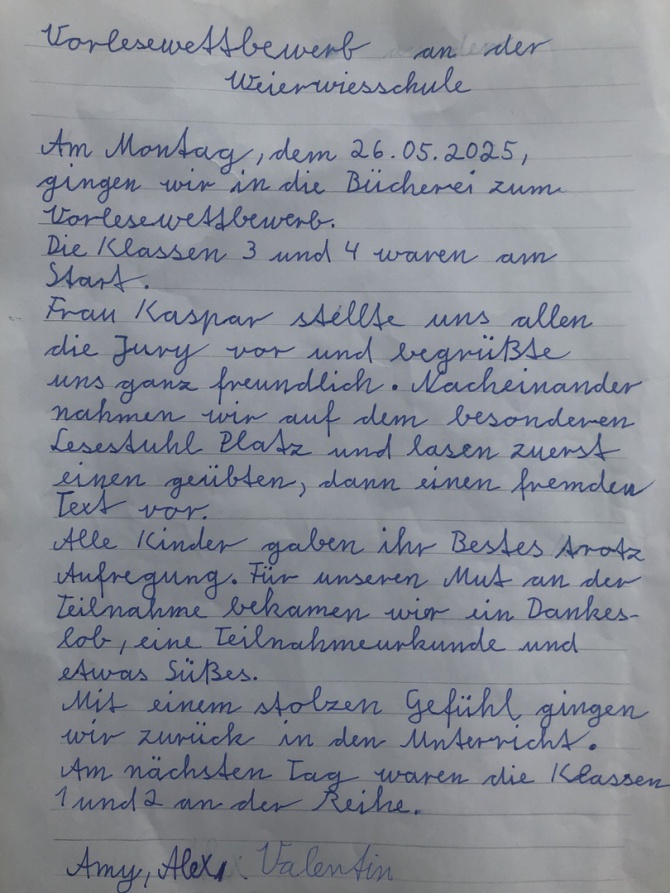 Vorlesewettbewerb an der
Weierwiesschule
Am Montag, dem 26.05.2025,
gingen wir in die Bücherei zum
Vorlesewettbewerb.
Die Klassen 3 und 4 waren am
Start.
Frau Kaspar stellte uns allen
die Jury vor und begrüßte
uns ganz freundlich. Nacheinander
nahmen wir auf dem besonderen
Lesestuhl Platz und lasen zuerst
einen geübten, dann einen fremden
Text vor.
Alle Kinder gaben ihr Bestes trotz
Aufregung. Für unseren Mut an der
Teilnahme bekamen wir ein Dankes-
lob, eine Teilnahmeurkunde und
etwas Süßes.
Mit einem stolzen Gefühl gingen
wir zurück in den Unterricht.
Am nächsten Tag waren die Klassen
1 und 2 an der Reihe.
Amy, Alex, Valentin